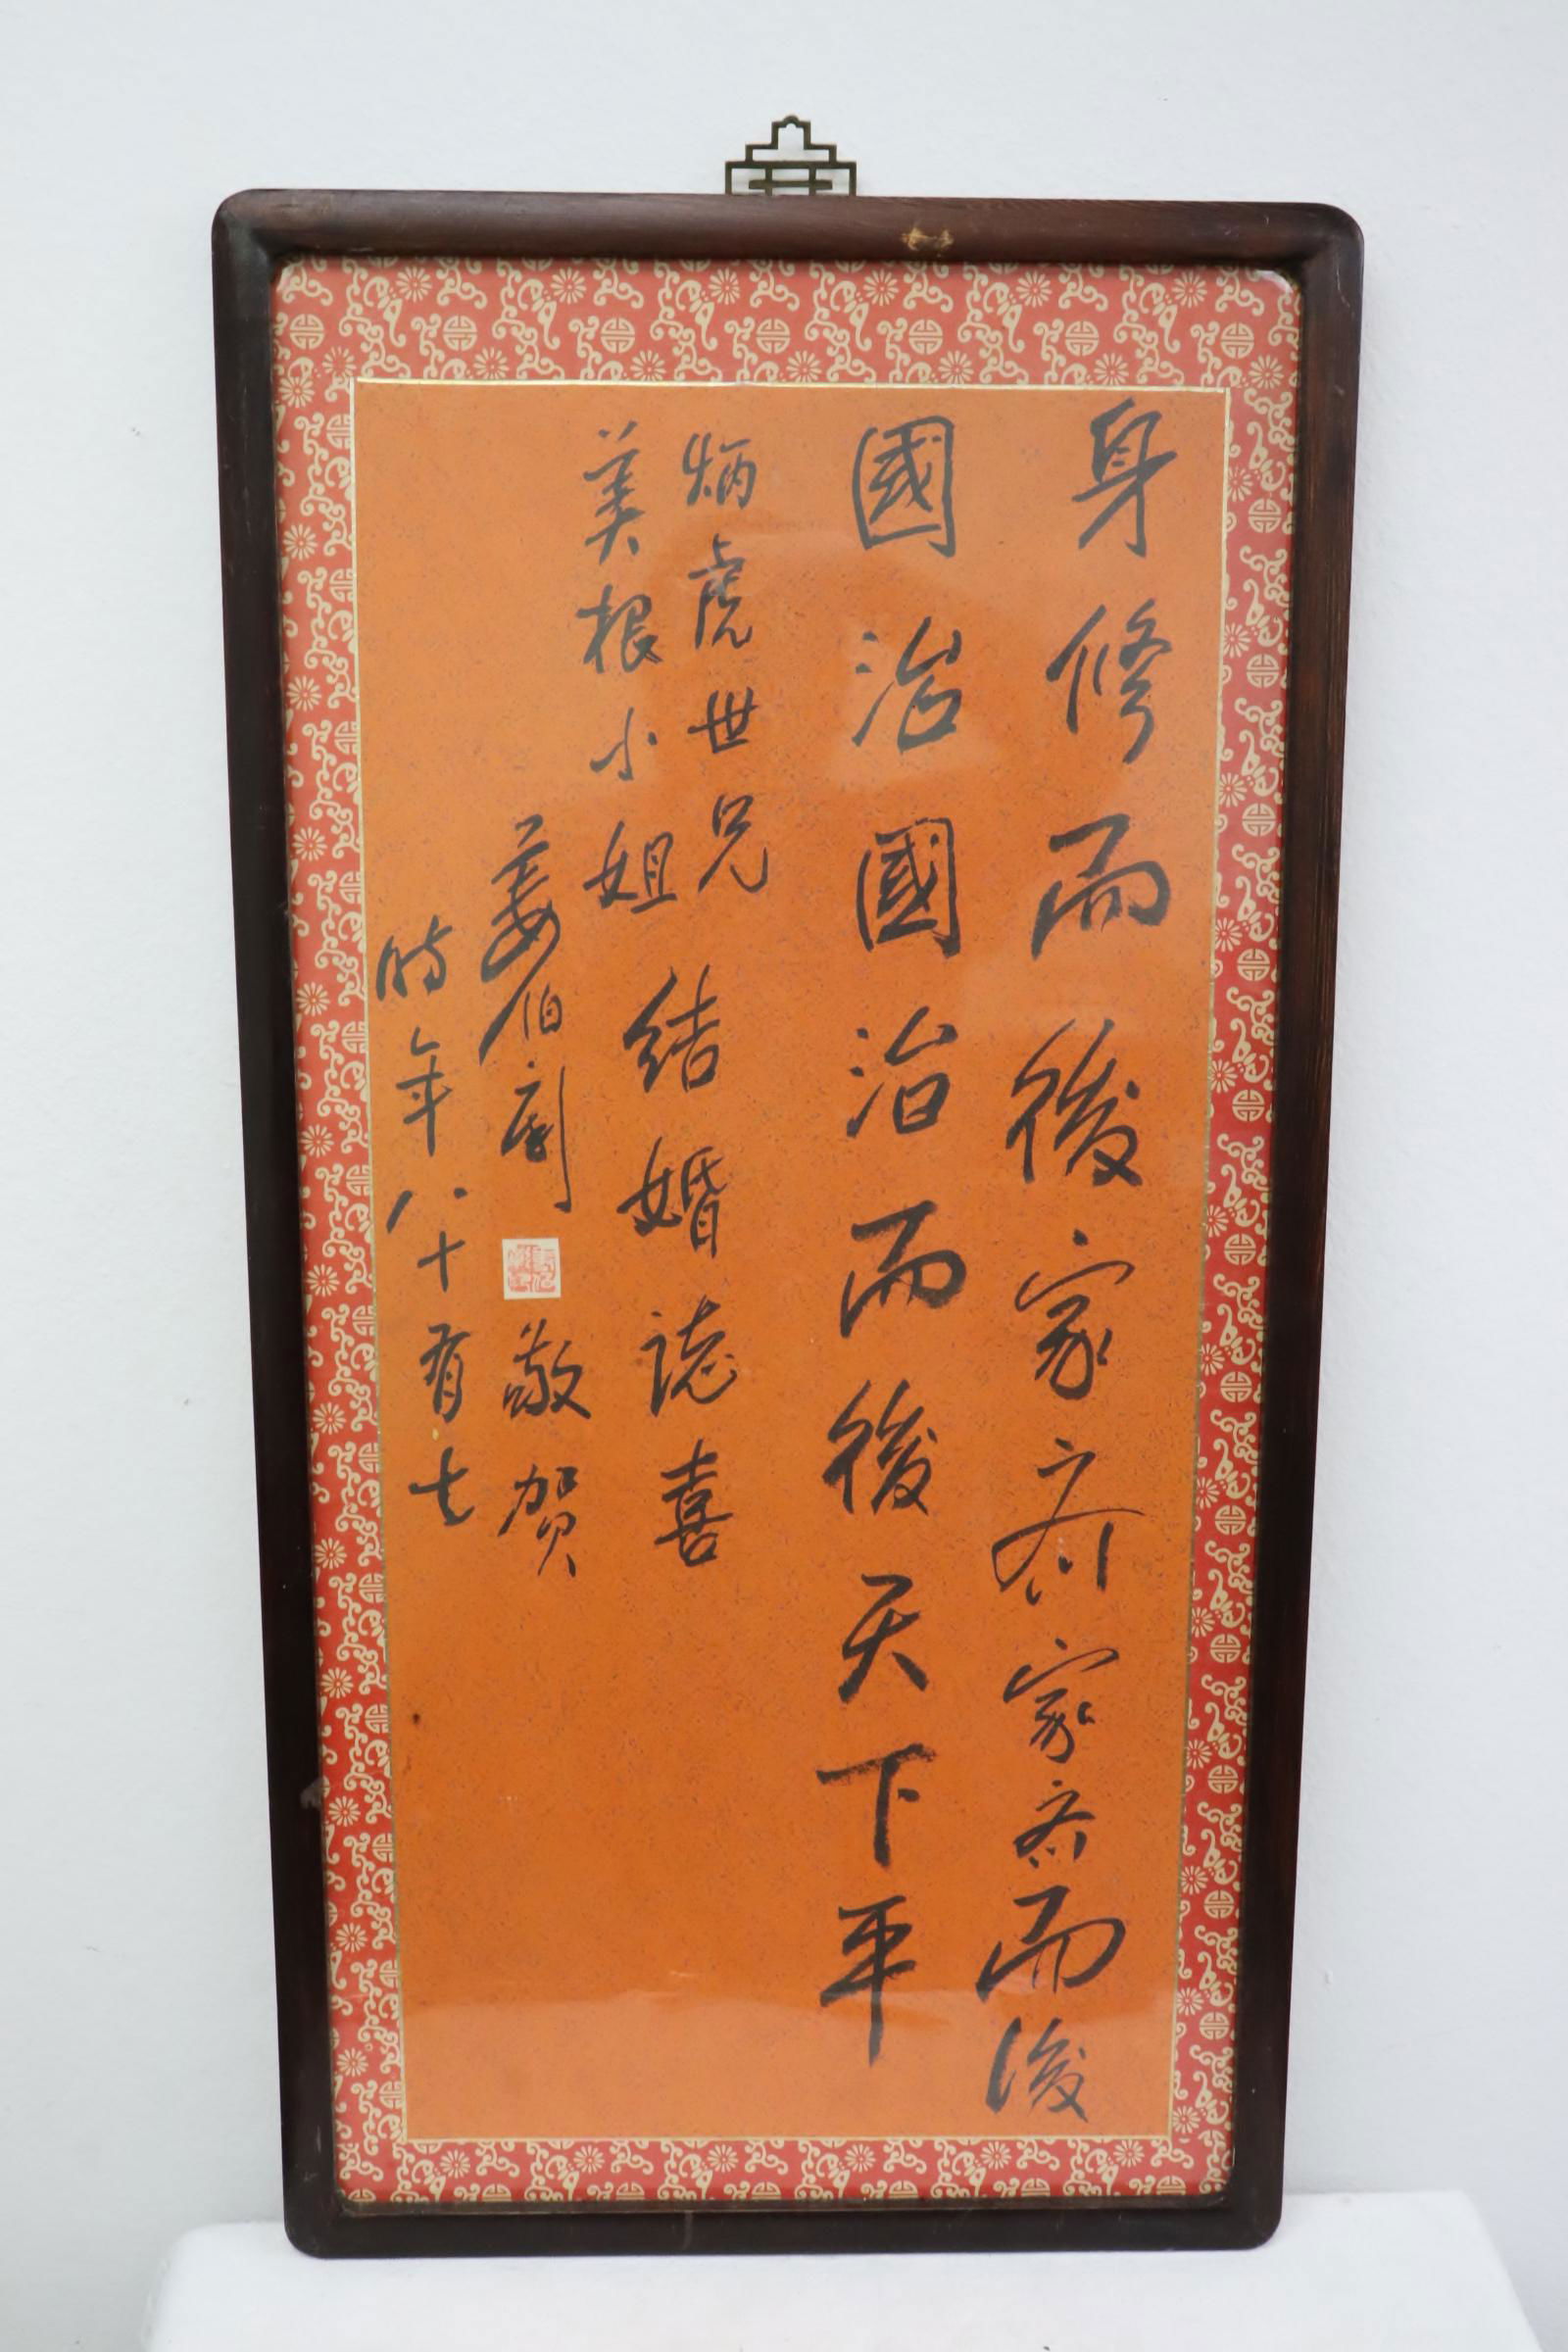 身修而後家齊家齊而後
國治國治而後天下平
炳虎世兄
美根小姐結婚誌喜
姜伯彰敬賀
時年八十有七